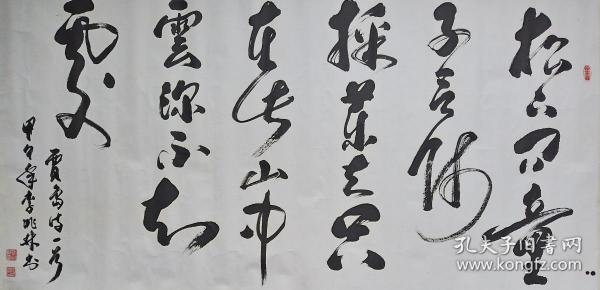 松下问童
子言師
採藥去只
在此山中
雲深不知
處
賈島诗一首
甲午年李兆林书
孔夫子旧书网
www.kongfz.com